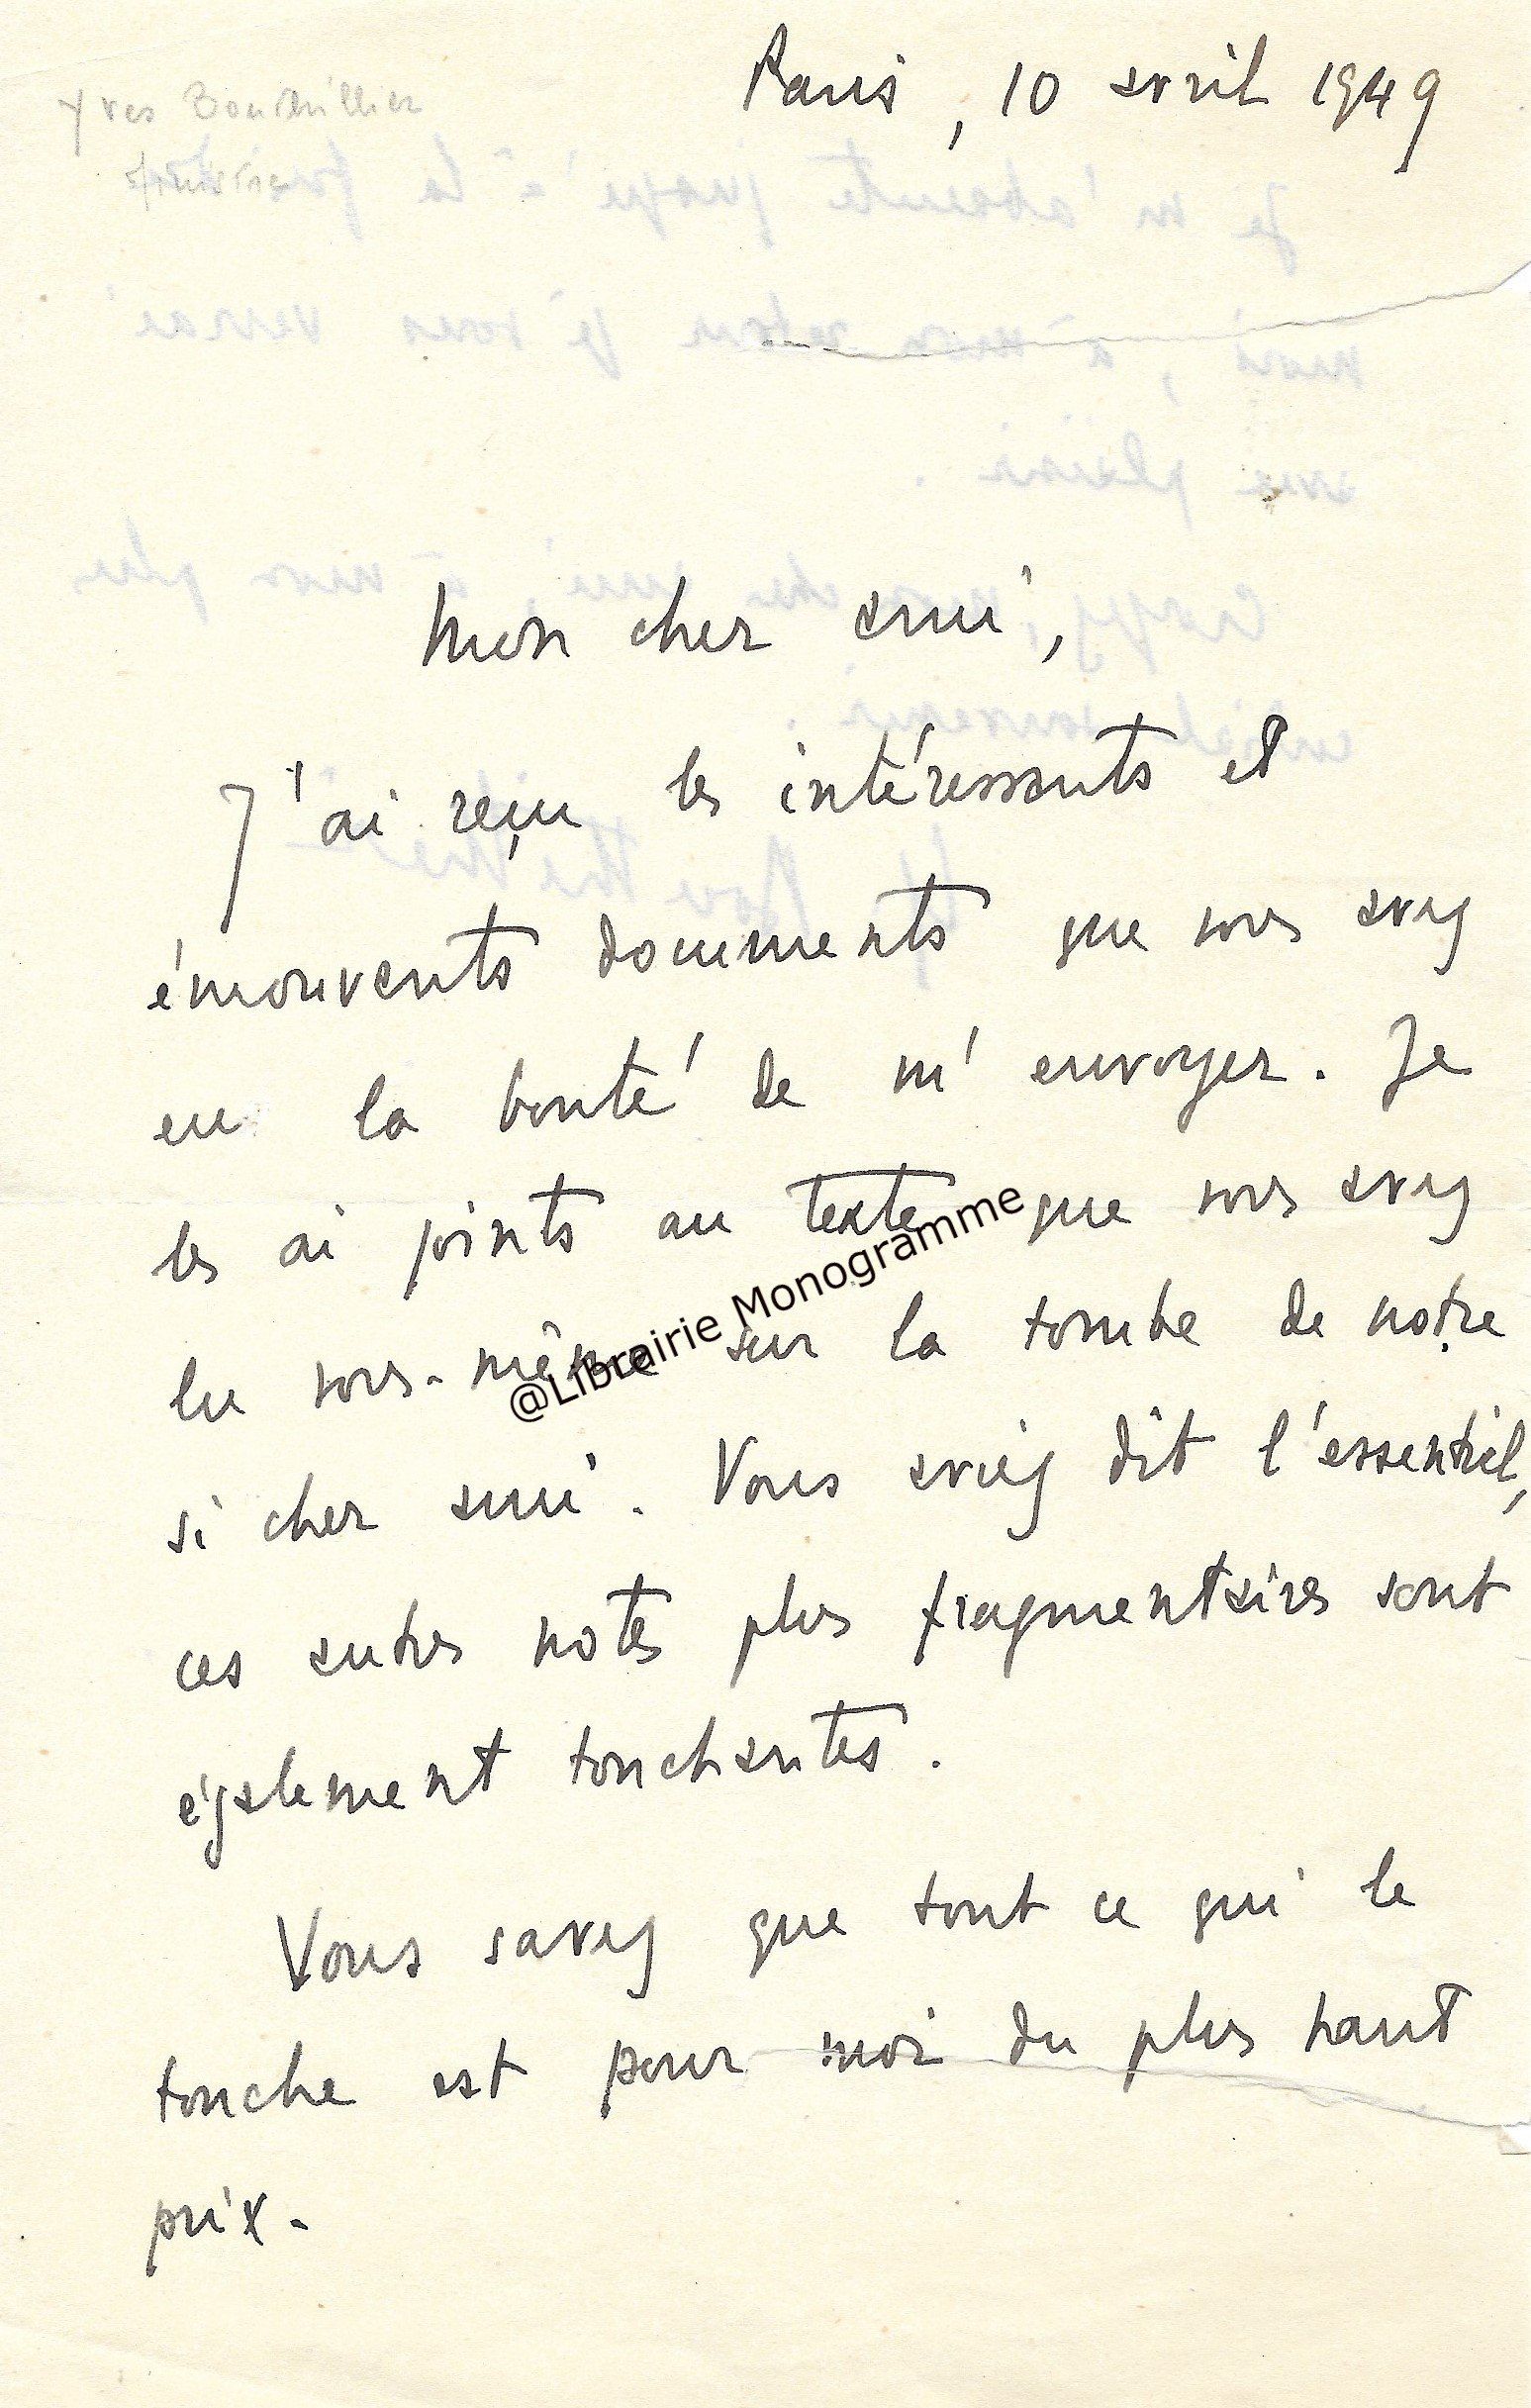 Yves Bouthillier
Paris, 10 avril 1949
Mon cher ami,
J'ai reçu les intéressants et
émouvants documents que vous avez
eu la bonté de m'envoyer. Je
les ai joints au texte que vous avez
lu vous-même sur la tombe de notre
@Librairie Monogramme
si cher ami. Vous aviez dit l'essentiel,
ces autres notes plus fragmentaires sont
également touchantes.
Vous savez que tout ce qui le
touche est pour moi du plus haut
prix.